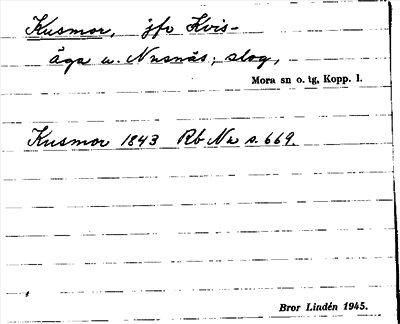 Kusmor, jfr Kvis-
åga u. Nusnäs; skog,
Mora sn o. tg, Kopp. l.
Kusmor 1843 Rb Nu s. 669.
Bror Lindén 1945.